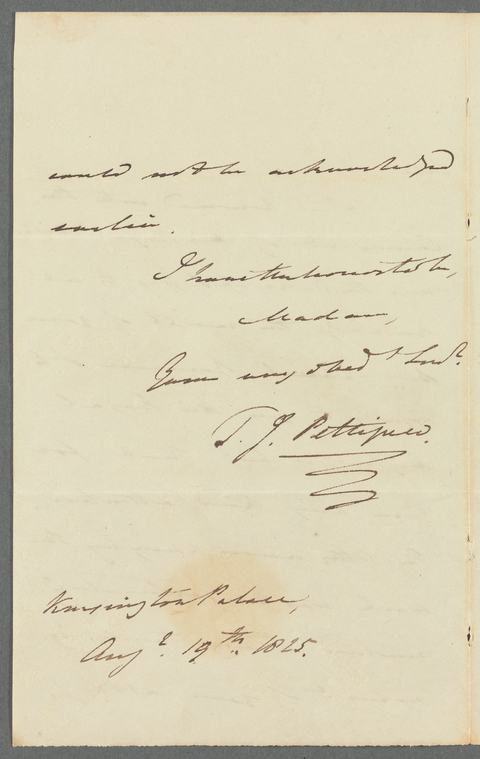 could not be acknowledged
earlier.
I have the honour to be,
Madam,
Your very obed^t Serv^t.
T. J. Pettigrew.
Kensington Palace,
Aug^t. 19^th. 1825.